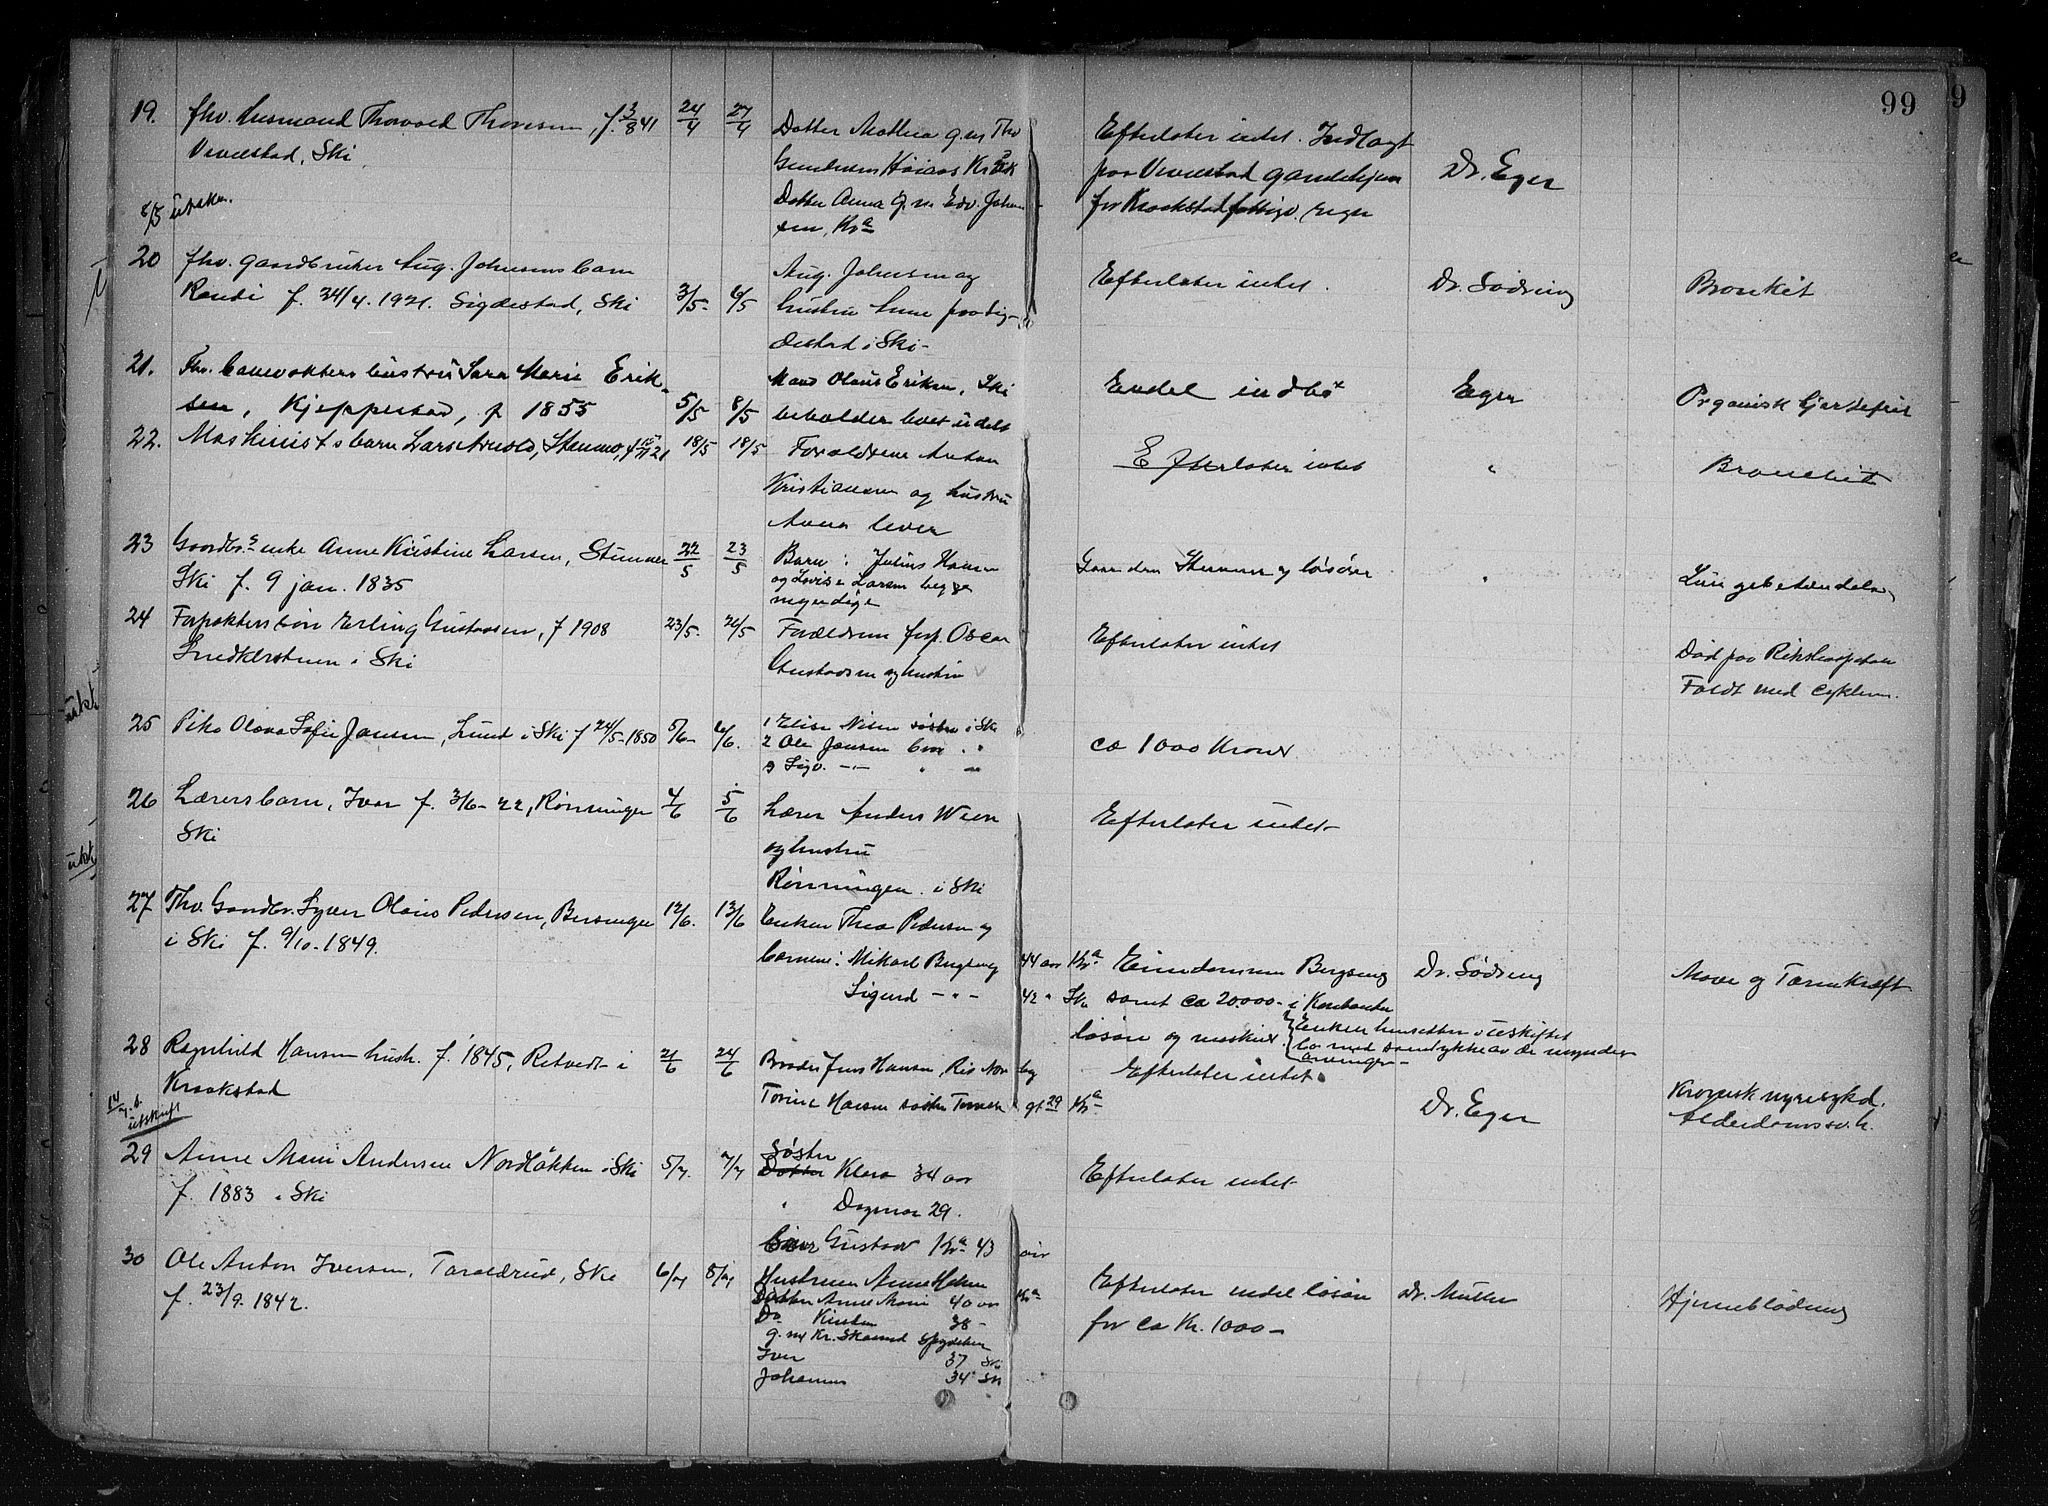 99
19. fhv. Husmand Thorvald Thoresen, f. 3/8 41 24/4 27/4
Vevelstad, Ski
8/5 utskr.
Datter Mathea g.m. Th.
Gundersen
Datter Anna g.m. Edv. Johan
sen, Kra
Efterlater intet. Indlagt
paa Vevelstad gamlehjem
for Kraakstad fattigv.
Dr. Eger
20 fhv. gaardbruker Aug. Johnsens barn
Randi f. 24/4. 1921. Sigdestad, Ski 3/5- 6/5
Aug. Johnsen og
hustru paa Sig-
destad i Ski-
Efterlater intet. Dr. Södring Bronkit
21. Fhv. banevokters hustru Sara Marie Erik-
sen, Kjeppestad, f 1855 5/5 8/5
Mand Olaus Eriksen, Ski
beholder boet udelt
Endel indbo Eger Organisk hjertefeil
22. Maskinistsbarn Lars Arnold, Stenmo, 21 18/5 18/5
Foraldrene Anton
Kristiansen og hustru
Anna lever
Efterlater intet " Bronchit
23 Gaardbr.s enke Anne Kristine Larsen, 22/5 23/5
Ski f. 9 jan. 1835
Barn: Julius Hansen
og Lovise Larsen begge
myndige
Gaarden og lösöre " Lungebetændelse
24 Forpakters sön Erling Gustavsen, f 1908 23/5. 26/5
Snedkerstuen i Ski
Foreldrene forp. Oscar
Gustavsen og hustru
Efterlater intet
Död paa Rikshospitalet
Faldt med cyklen.
25 Pike Olava Sofie Jansen, Lund i Ski f 24/5-1850 5/6- 6/6.
1 Elise Nilsen söster i Ski
2 Ole Jansen bror " "
3 Sigv. -"- " "
ca 1000 Kroner
26 Lærers barn, Ivar f. 3/6-22, Rönningen 4/6 5/6
Ski
Lærer Anders Ween
og hustru
Rönningen i Ski
Efterlater intet-
27 Fhv. Gaardbr. Syver Olaus Pedersen, Bersengen 12/6. 13/6
i Ski f. 9/10-1849.
Enken Thea Pedersen og
barnene: Mikael Bergseng 44 aar Kra
Sigurd -"- 42 " Ski
Eiendommen Bergseng
samt ca 20000- i Kontanter
lösöre og maskiner. {Enken hensidder i uskiftet
bo med samtykke av de myndige
arvinger-
Dr. Södring Mave og Tarmkræft
28 Ragnhild Hansen hush. f. 1845, Retvedt i 21/6 24/6
Kraakstad
14/7. s.
utskrift
Broder Jens Hansen,
Torine Hansen söster
Kra
Efterlater intet.
Dr. Eger Kronisk nyresykd.
Alderdomssv.h.
29 Anne Marie Andersen Nordlökken i Ski 5/7. 7/7
f. 1883 i Ski
Söster
Datter Klara 34 aar
" Dagmar 29.
bror Gustav Kra 43 aar
Efterlater intet
30 Ole Anton Iversen, Taraldrud, Ski 6/7 8/7
f. 23/9. 1842.
Hustruen Anne Helene
Datter Anne Marie 40 aar Kra
Do Kirsten 38 -
g. m. Kr. Skarrud Spydeberg
Iver 37 Ski
Johannes 34 Ski
Efterlater endel lösöre
for ca Kr. 1000-
Dr. Müller Hjerneblödning